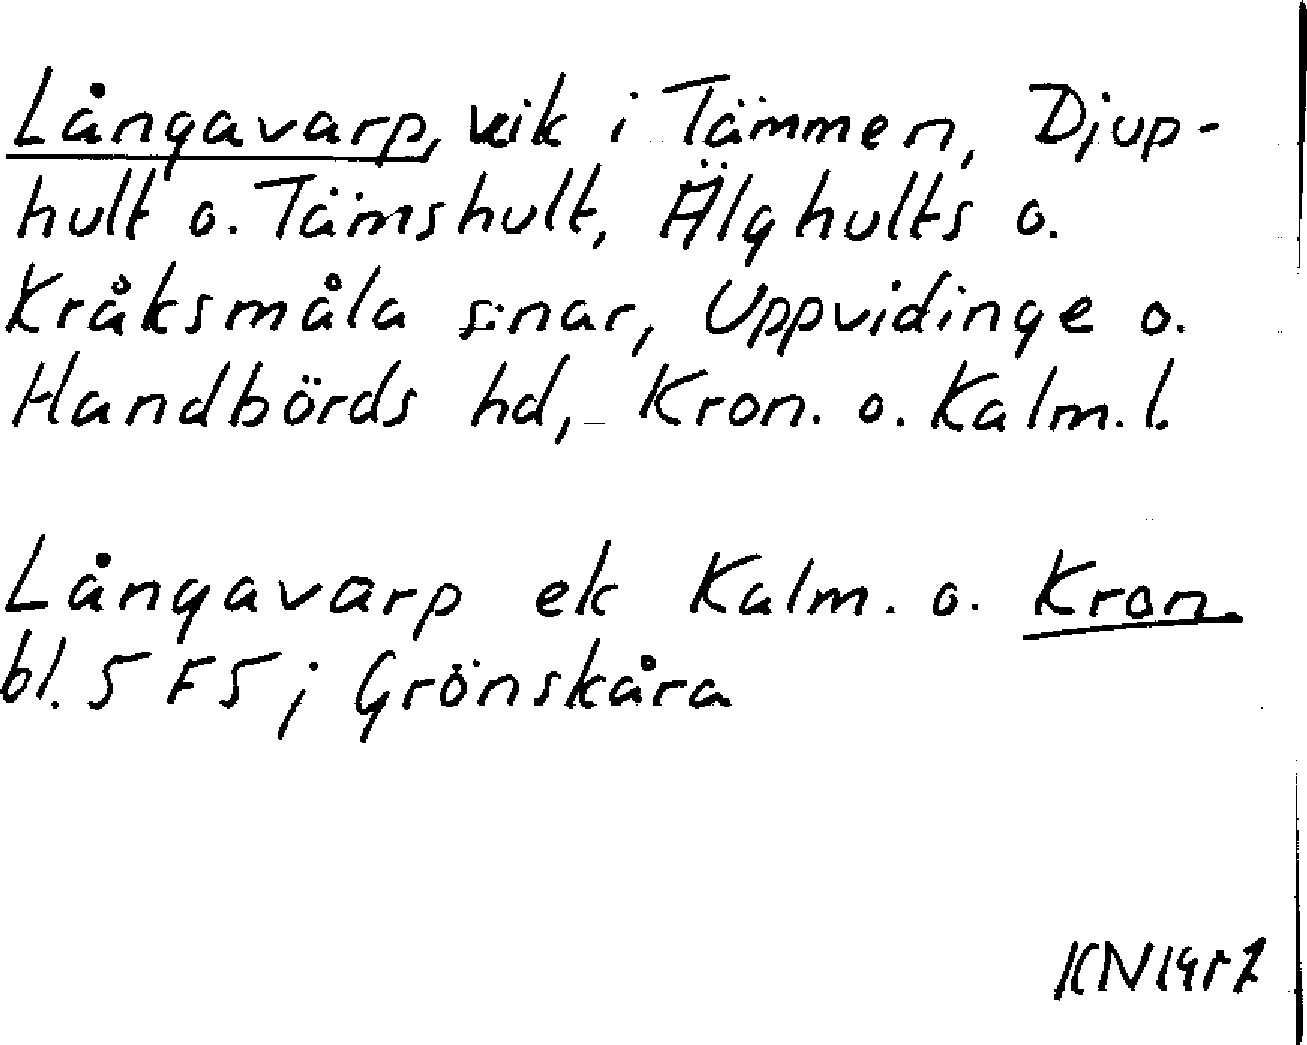 Långavarp, vik i Tämmen, Djup-
hult o. Tämshult, Älghults o.
Kråksmåla snar, Uppvidinge o.
Handbörds hd, Kron. o. Kalm. l.
Långavarp ek Kalm. o. Kron.
bl. 5 F 5; Grönskåra